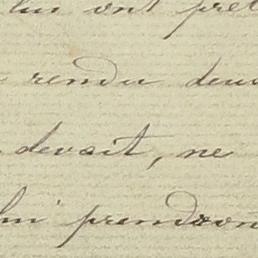 lui ont prêt
rendu deux
devait, ne
lui prendron